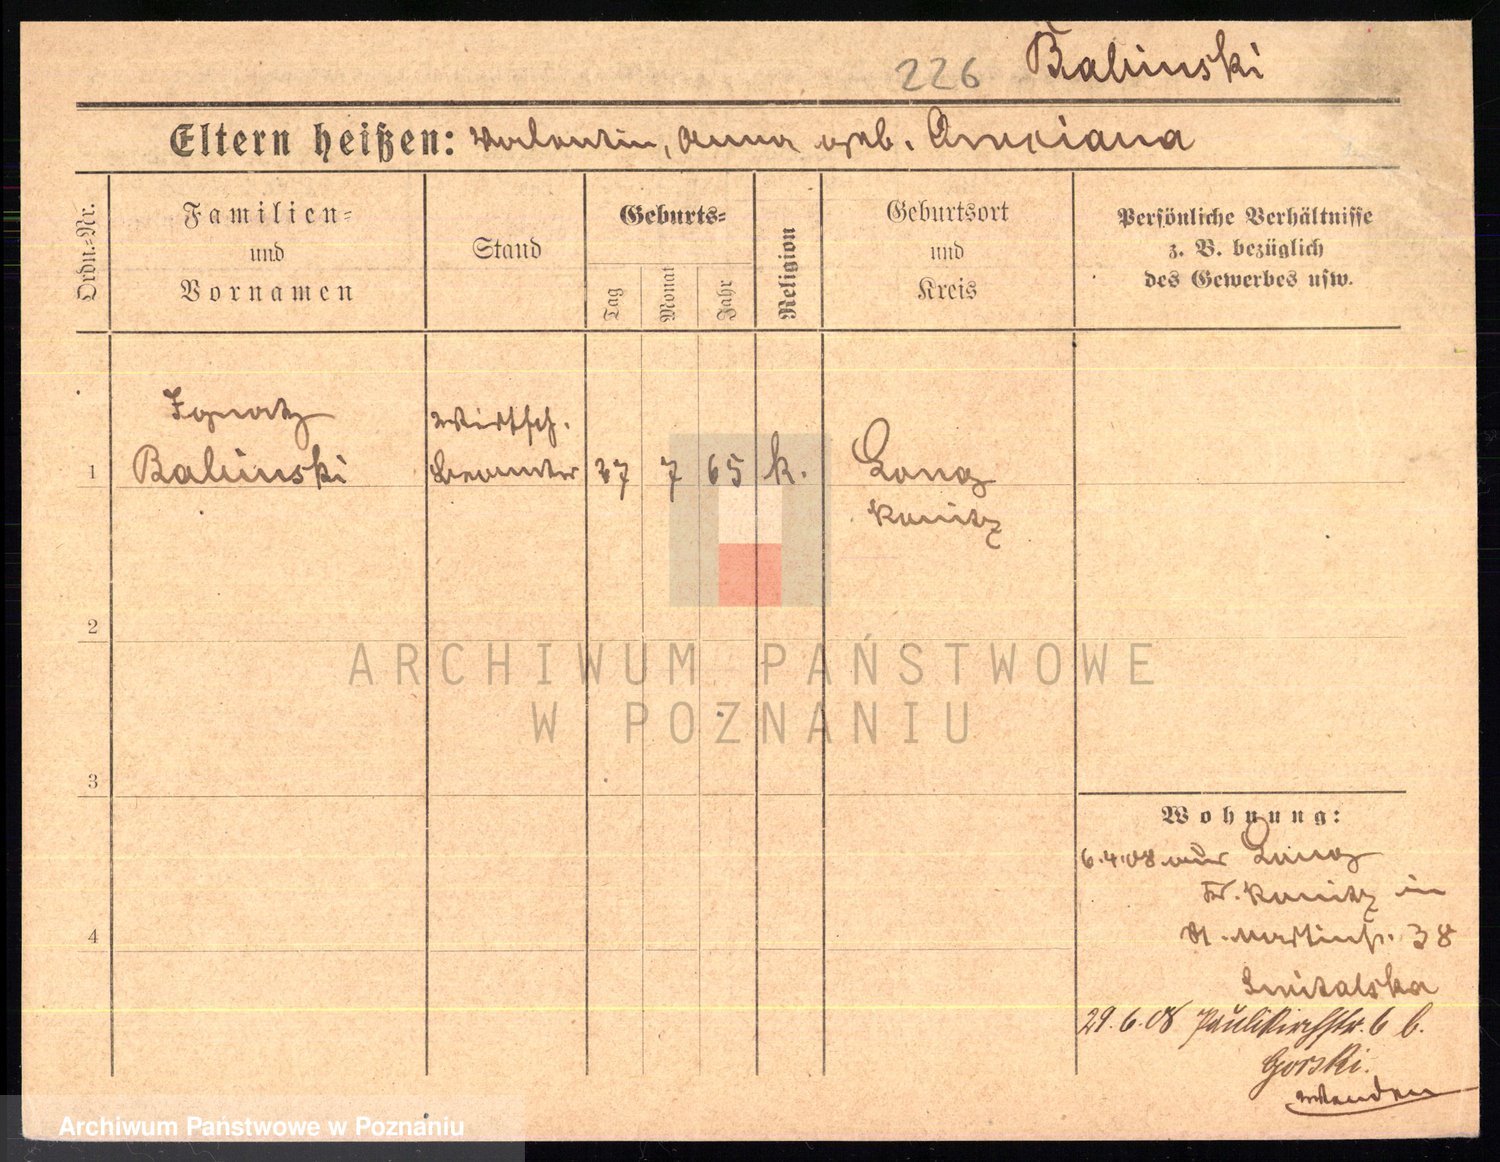 226 Babinski
Eltern heißen: Valentin, Anna geb.
Ordn.-Nr.
Familien-
und
Vornamen
Stand
Geburts-
Tag
Monat
Jahr
Religion
Geburtsort
und
Kreis
Persönliche Verhältnisse
z. B. bezüglich
des Gewerbes usw.
Ignatz
Wirtsch.
1 Babinski beamter 27 7 65 k. Long
Konitz
2
3
4
Wohnung:
6.4.08 aus Long
Kr. Konitz in
St. Martinstr. 38
29.6.08 Paulikirchstr. 6 b.
Gorski.
wenden
ARCHIWUM PAŃSTWOWE
W POZNANIU
Archiwum Państwowe w Poznaniu